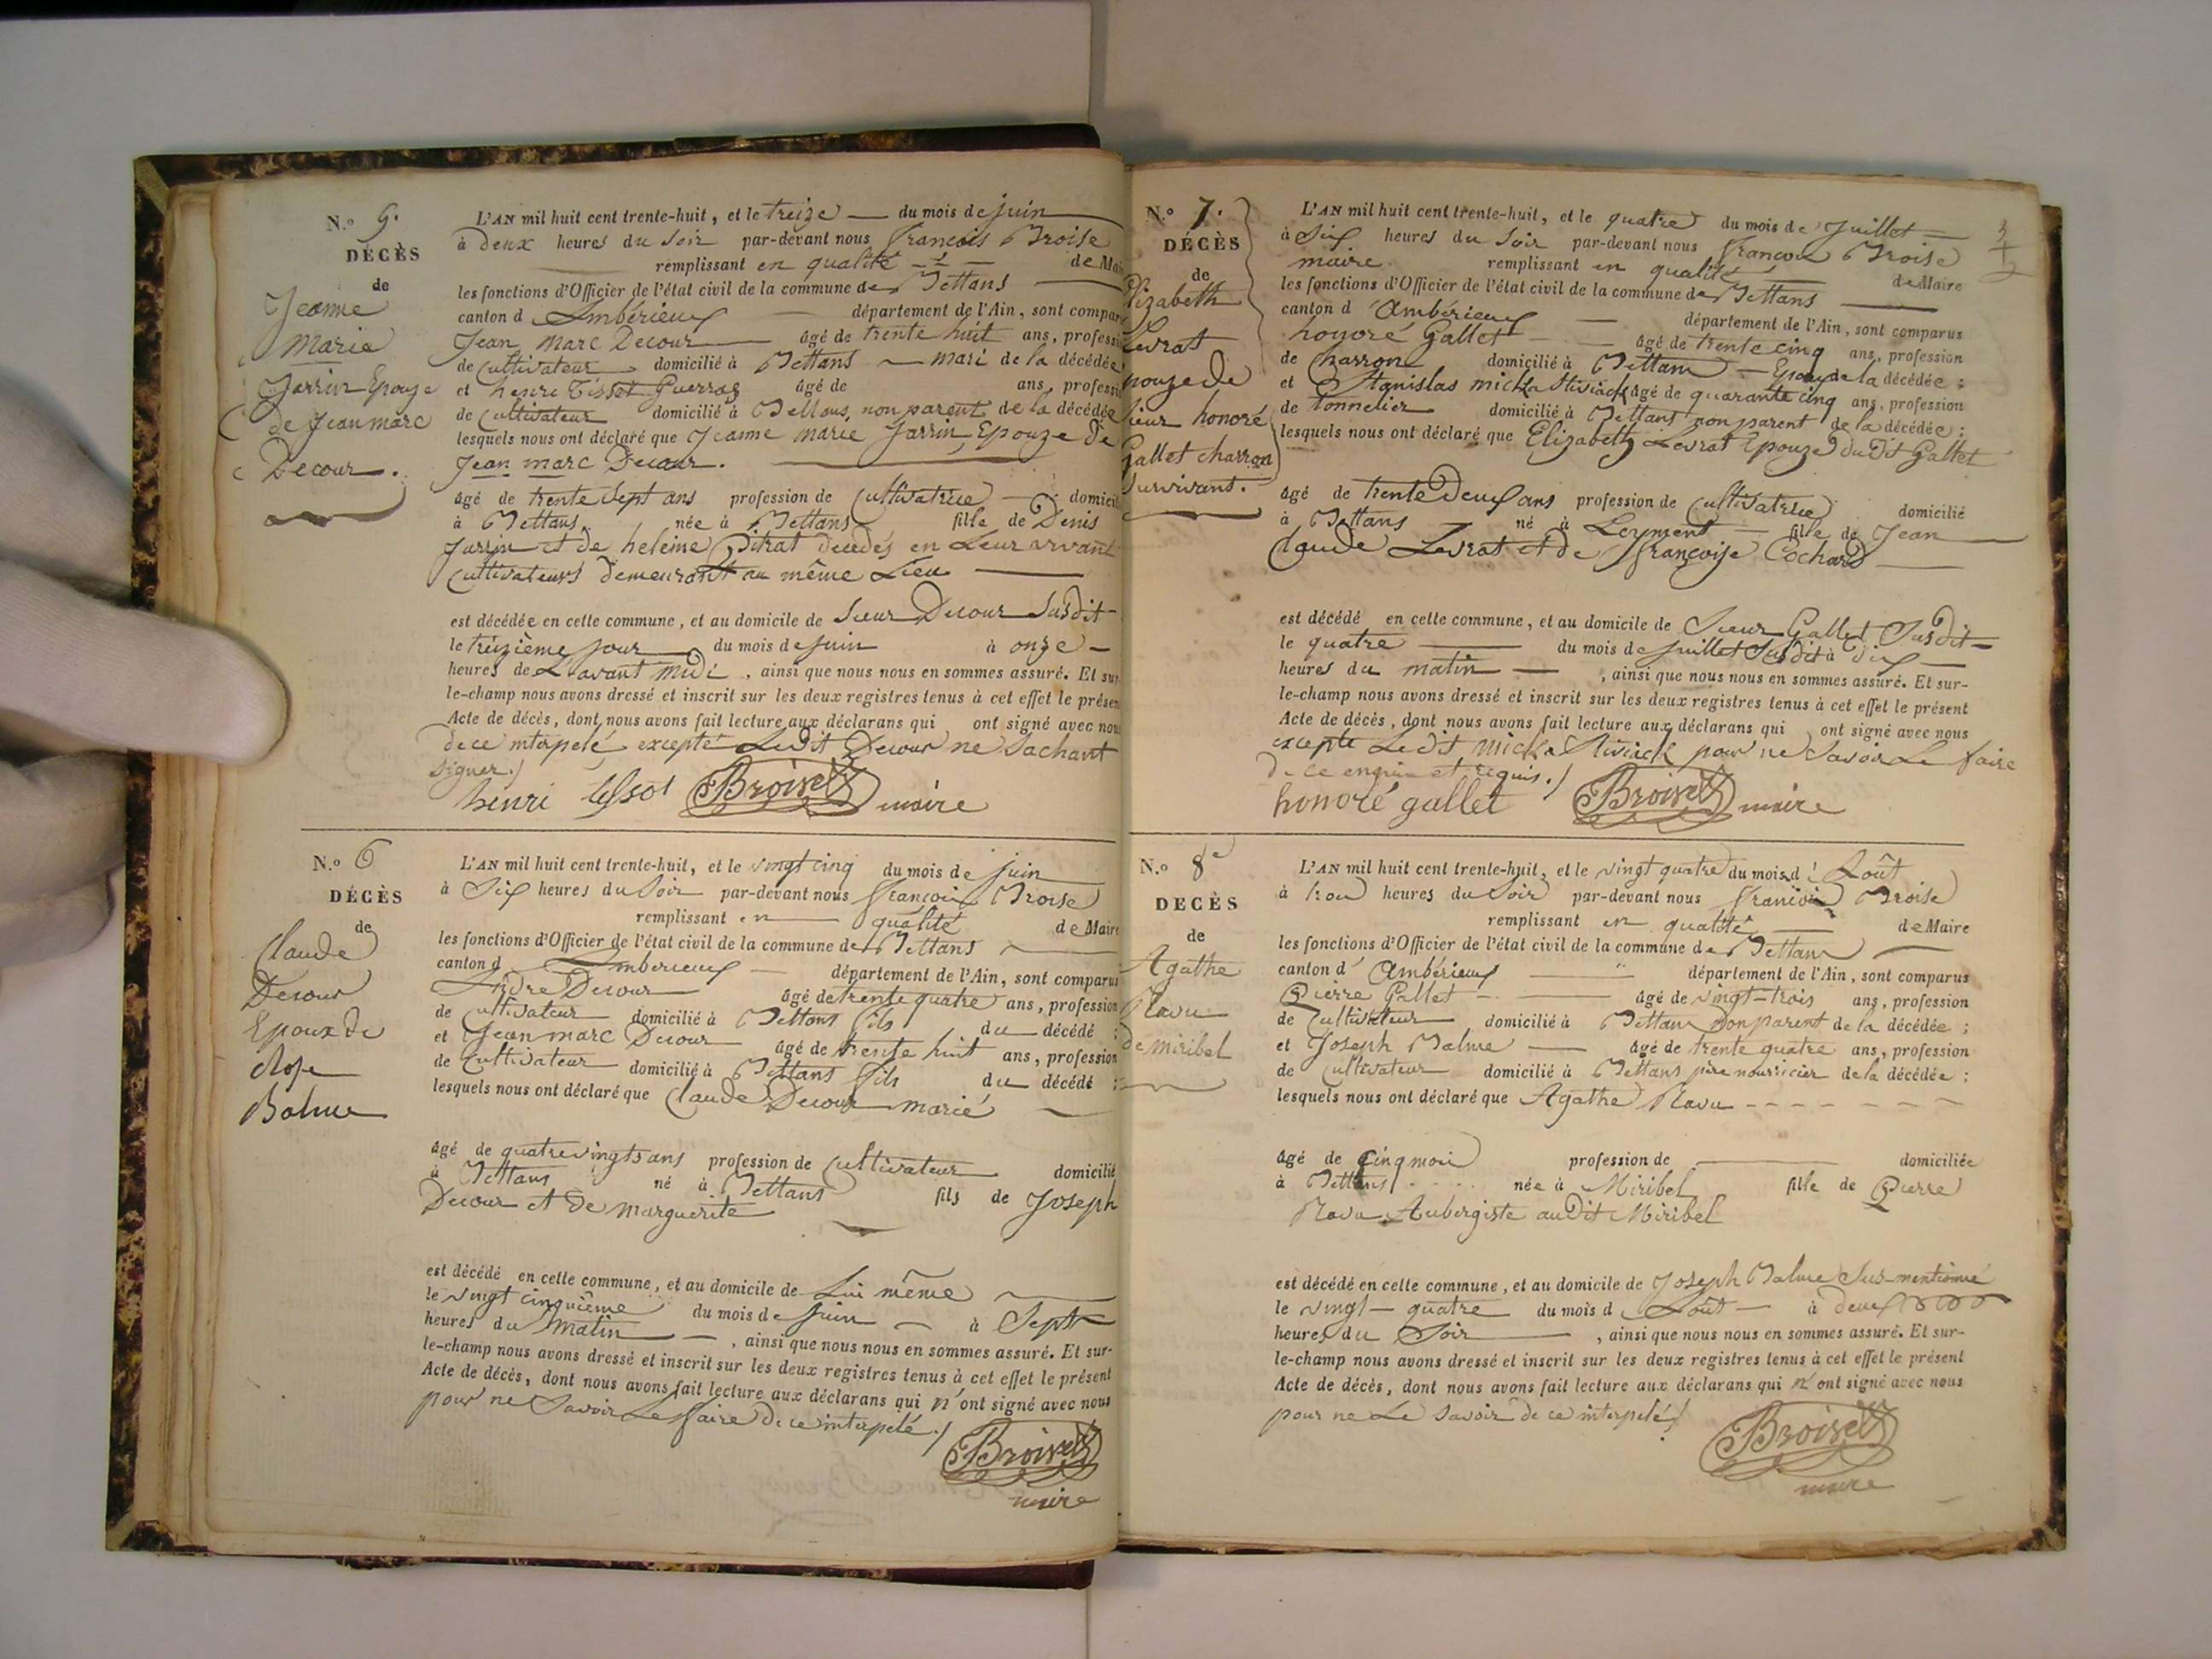 N.o 5.
DÉCÈS
de
Jeanne
Marie
Jarrin Epouze
de Jean marc
Decour.
L'AN mil huit cent trente-huit, et le treize du mois de juin
à deux heures du soir par-devant nous francois Broise
remplissant en qualité de Mai
les fonctions d'Officier de l'état civil de la commune de Bettans
canton d Ambérieux département de l'Ain, sont compar
Jean Marc Decour âgé de trente huit ans, profess
de Cultivateur domicilié à Bettans mari de la décédée
et henri Tissot Guerraz âgé de ans, professi
de Cultivateur domicilié à Bettans, non parent de la décédée
lesquels nous ont déclaré que Jeanne marie Jarrin Epouze de
Jean marc Decour.
âgé de trente sept ans profession de Cultivatrice domicil
à Bettans née à Bettans fille de Denis
Jarrin et de heleine Pitrat decedés en Leur vivant
Cultivateurs demeurant au même Lieu
est décédée en cette commune, et au domicile de Sieur Decour Susdit
le treizième jour du mois de juin à onze
heures de L'avant midi, ainsi que nous nous en sommes assuré. Et sur
le-champ nous avons dressé et inscrit sur les deux registres tenus à cet effet le présen
Acte de décès, dont nous avons fait lecture aux déclarans qui ont signé avec nou
de ce interpelé excepté Ledit Decour ne Sachant
signer./
henri tissot Broise maire
N.o 6
DÉCÈS
de
Claude
Decour
Epoux de
Rose
Balme
L'AN mil huit cent trente-huit, et le vingt cinq du mois de juin
à Six heures du Soir par-devant nous francois Broise
remplissant en qualité de Maire
les fonctions d'Officier de l'état civil de la commune de Bettans
canton d Amberieux département de l'Ain, sont comparus
Andre Decour âgé de trente quatre ans, profession
de Cultivateur domicilié à Bettans fils du décédé ;
et Jean marc Decour âgé de trente huit ans, profession
de Cultivateur domicilié à Bettans fils du décédé ;
lesquels nous ont déclaré que Claude Decour marié
âgé de quatrevingts ans profession de Cultivateur domicilié
à Bettans né à Bettans fils de Joseph
Decour et de marguerite
est décédé en cette commune, et au domicile de Lui même
le vingt cinquième du mois de juin à Sept
heures du Matin, ainsi que nous nous en sommes assuré. Et sur-
le-champ nous avons dressé et inscrit sur les deux registres tenus à cet effet le présent
Acte de décès, dont nous avons fait lecture aux déclarans qui n'ont signé avec nous
pour ne Savoir Le faire de ce interpelé./
Broise
maire
N.o 7.
DÉCÈS
de
Elizabeth
Levrat
Epouze de
sieur honoré
Gallet charron
Survivant.
L'AN mil huit cent trente-huit, et le quatre du mois de Juillet
à Six heures du Soir par-devant nous françois Broise
maire remplissant en qualité de Maire
les fonctions d'Officier de l'état civil de la commune de Bettans
canton d'Ambérieux département de l'Ain, sont comparus
honoré Gallet âgé de trente cinq ans, profession
de Charron domicilié à Bettans Epoux de la décédée ;
et Stanislas âgé de quarante cinq ans, profession
de tonnelier domicilié à Bettans non parent de la décédée ;
lesquels nous ont déclaré que Elizabeth Levrat Epouze du dit Gallet
âgé de trente deux ans profession de Cultivatrice domicilié
à Bettans né à Leyment fille de Jean
Claude Levrat et de françoise Cochard
est décédé en cette commune, et au domicile de Sieur Gallet Susdit
le quatre du mois de juillet Susdit à dix
heures du matin, ainsi que nous nous en sommes assuré. Et sur-
le-champ nous avons dressé et inscrit sur les deux registres tenus à cet effet le présent
Acte de décès, dont nous avons fait lecture aux déclarans qui ont signé avec nous
excepté Ledit pour ne Savoir Le faire
de ce enquis et requis./
honoré gallet Broise maire
N.o 8
DÉCÈS
de
Agathe
Ravu
de miribel
L'AN mil huit cent trente-huit, et le vingt quatre du mois d'Août
à trois heures du Soir par-devant nous francois Broise
remplissant en qualité de Maire
les fonctions d'Officier de l'état civil de la commune de Bettans
canton d'Ambérieux département de l'Ain, sont comparus
Pierre Gallet âgé de vingt-trois ans, profession
de Cultivateur domicilié à Bettans non parent de la décédée ;
et Joseph Balme âgé de trente quatre ans, profession
de Cultivateur domicilié à Bettans père nourricier de la décédée ;
lesquels nous ont déclaré que Agathe Ravu
âgé de Cinq mois profession de domiciliée
à Bettans née à Miribel fille de Pierre
Ravu Aubergiste audit Miribel
est décédé en cette commune, et au domicile de Joseph Balme Sus-mentionné
le vingt-quatre du mois d Août à deux
heures du Soir, ainsi que nous nous en sommes assuré. Et sur-
le-champ nous avons dressé et inscrit sur les deux registres tenus à cet effet le présent
Acte de décès, dont nous avons fait lecture aux déclarans qui n'ont signé avec nous
pour ne Le Savoir de ce interpelé./
Broise
maire